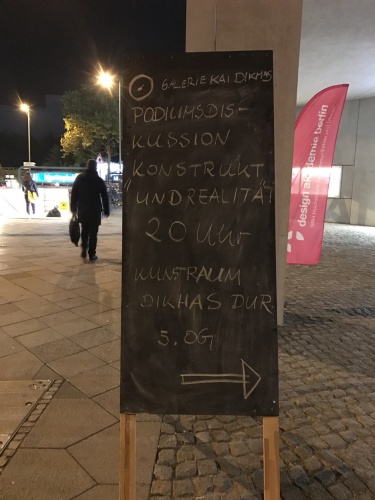 GALERIE KAI DIKHAS
PODIUMSDIS-
KUSSION
KONSTRUKT
"UNDREALITÄT"
20 UHR
KUNSTRAUM
DIKHAS DUR
5. OG
design akademie berlin